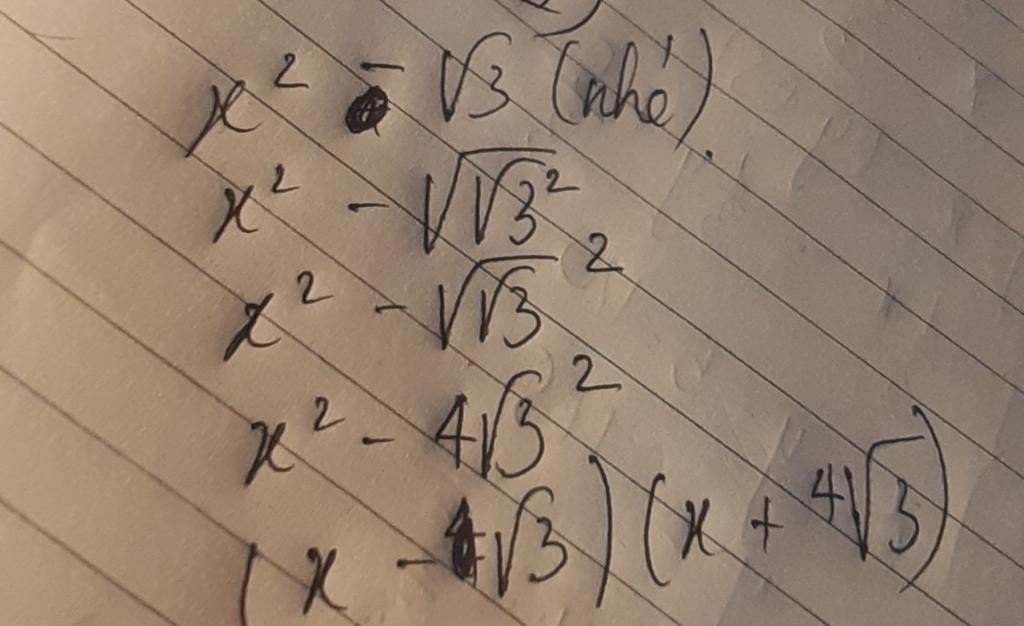 x² - √3 (nhé).
x² - √√3²
x² - √√3²
x² - 4√3²
(x - 4√3)(x + 4√3)